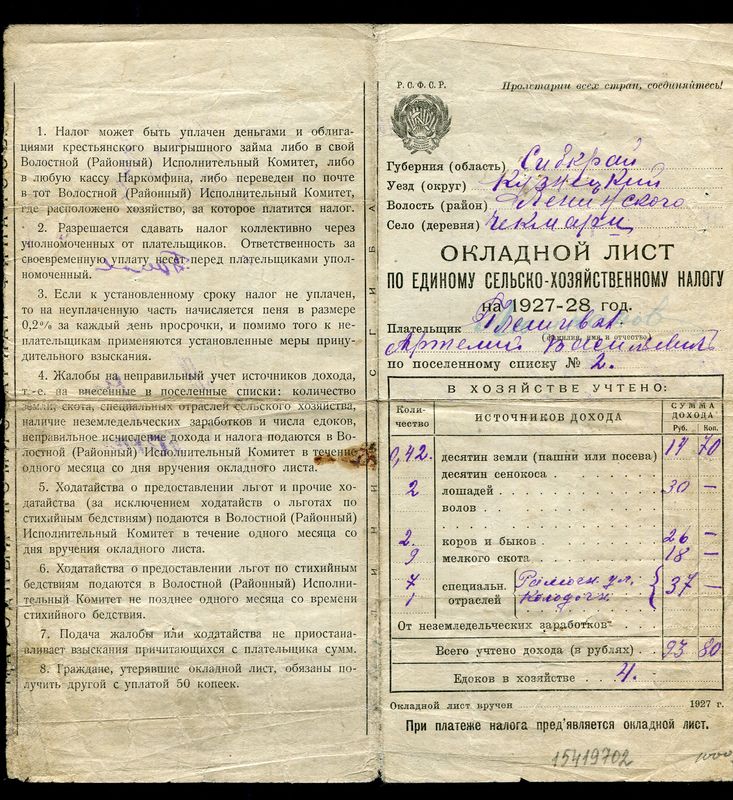 1. Налог может быть уплачен деньгами и облига-
циями крестьянского выигрышного займа либо в свой
Волостной (Районный) Исполнительный Комитет, либо
в любую кассу Наркомфина, либо переведен по почте
в тот Волостной (Районный) Исполнительный Комитет,
где расположено хозяйство, за которое платится налог.
2. Разрешается сдавать налог коллективно через
уполномоченных от плательщиков. Ответственность за
своевременную уплату несет перед плательщиками упол-
номоченный.
3. Если к установленному сроку налог не уплачен,
то на неуплаченную часть начисляется пеня в размере
0,2% за каждый день просрочки, и помимо того к не-
плательщикам применяются установленные меры прину-
дительного взыскания.
4. Жалобы на неправильный учет источников дохода,
т.-е. на внесенные в поселенные списки: количество
земли, скота, специальных отраслей сельского хозяйства,
наличие неземледельческих заработков и числа едоков,
неправильное исчисление дохода и налога подаются в Во-
лостной (Районный) Исполнительный Комитет в течение
одного месяца со дня вручения окладного листа.
5. Ходатайства о предоставлении льгот и прочие хо-
датайства (за исключением ходатайств о льготах по
стихийным бедствиям) подаются в Волостной (Районный)
Исполнительный Комитет в течение одного месяца со
дня вручения окладного листа.
6. Ходатайства о предоставлении льгот по стихийным
бедствиям подаются в Волостной (Районный) Исполни-
тельный Комитет не позднее одного месяца со времени
стихийного бедствия.
7. Подача жалобы или ходатайства не приостана-
вливает взыскания причитающихся с плательщика сумм.
8. Граждане, утерявшие окладной лист, обязаны по-
лучить другой с уплатой 50 копеек.
Р. С. Ф. С. Р.
Пролетарии всех стран, соединяйтесь!
Губерния (область) Сибкрай
Уезд (округ) Кузнецкий
Волость (район) Ленинского
Село (деревня)
ОКЛАДНОЙ ЛИСТ
ПО ЕДИНОМУ СЕЛЬСКО-ХОЗЯЙСТВЕННОМУ НАЛОГУ
на 1927-28 год.
Плательщик
(фамилия, имя и отчество)
по поселенному списку № 2.
В ХОЗЯЙСТВЕ УЧТЕНО:
Коли-
чество
ИСТОЧНИКОВ ДОХОДА
СУММА
ДОХОДА
Руб. Коп.
0,42. десятин земли (пашни или посева) 70
десятин сенокоса
2 лошадей 30 —
волов
2. коров и быков 26 —
9 мелкого скота 18 —
7 специальн. 37 —
1 отраслей
От неземледельческих заработков
Всего учтено дохода (в рублях) 93 80
Едоков в хозяйстве 4.
Окладной лист вручен 1927 г.
При платеже налога пред'является окладной лист.
15419702